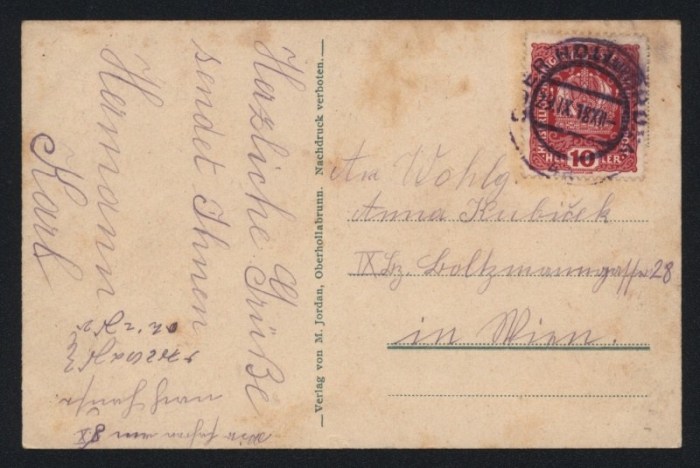 Herzliche Grüße
sendet Ihnen
Hermann
Karl
nach Hause.
Wir fahren am 8.X
Verlag von M. Jordan, Oberhollabrunn. Nachdruck verboten.
OBER HOLLABRUNN
IX.18 XII
HELLER
10
An Wohlg.
Anna Kubiček
IX Bz. Boltzmanngasse 28
in Wien.